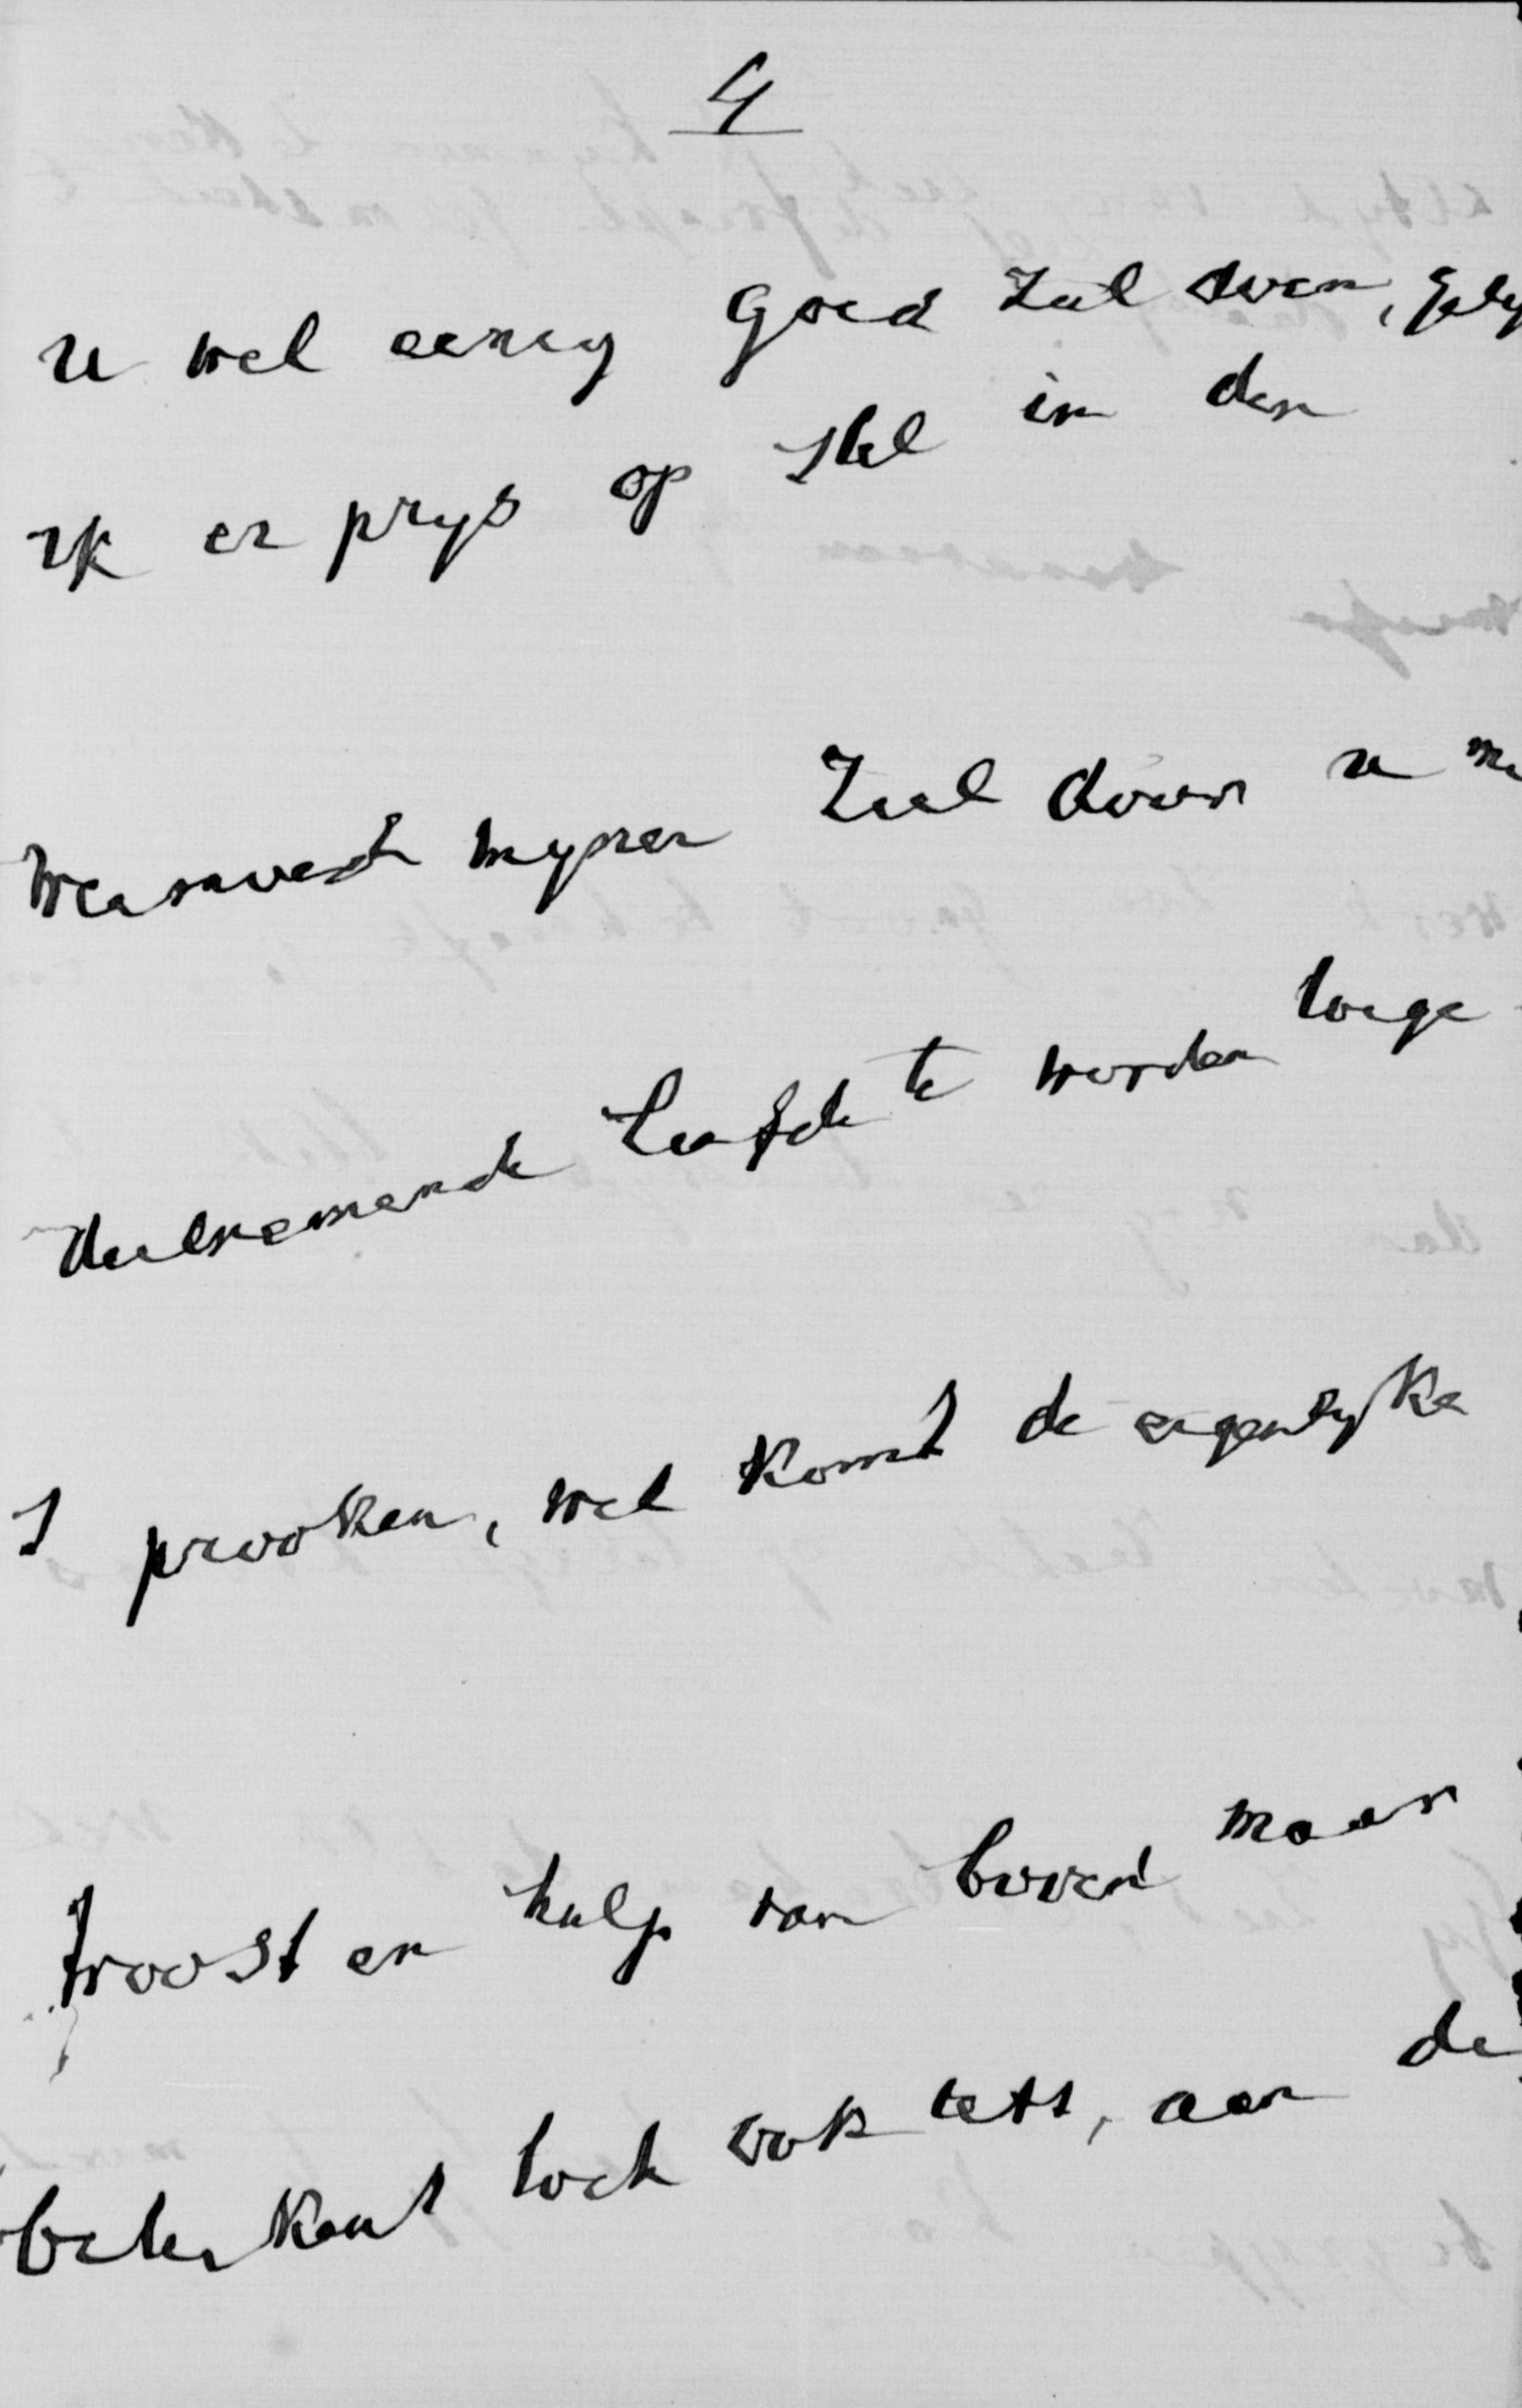 4
u wel eenig goed zal doen, gely
ik er prys op stel in den
weemoed myner ziel door u me
deelnemende liefde te worden toege-
sprooken, wel komt de eigenlyke
troost en hulp van boven maar
beteekent toch ook iets, aan de